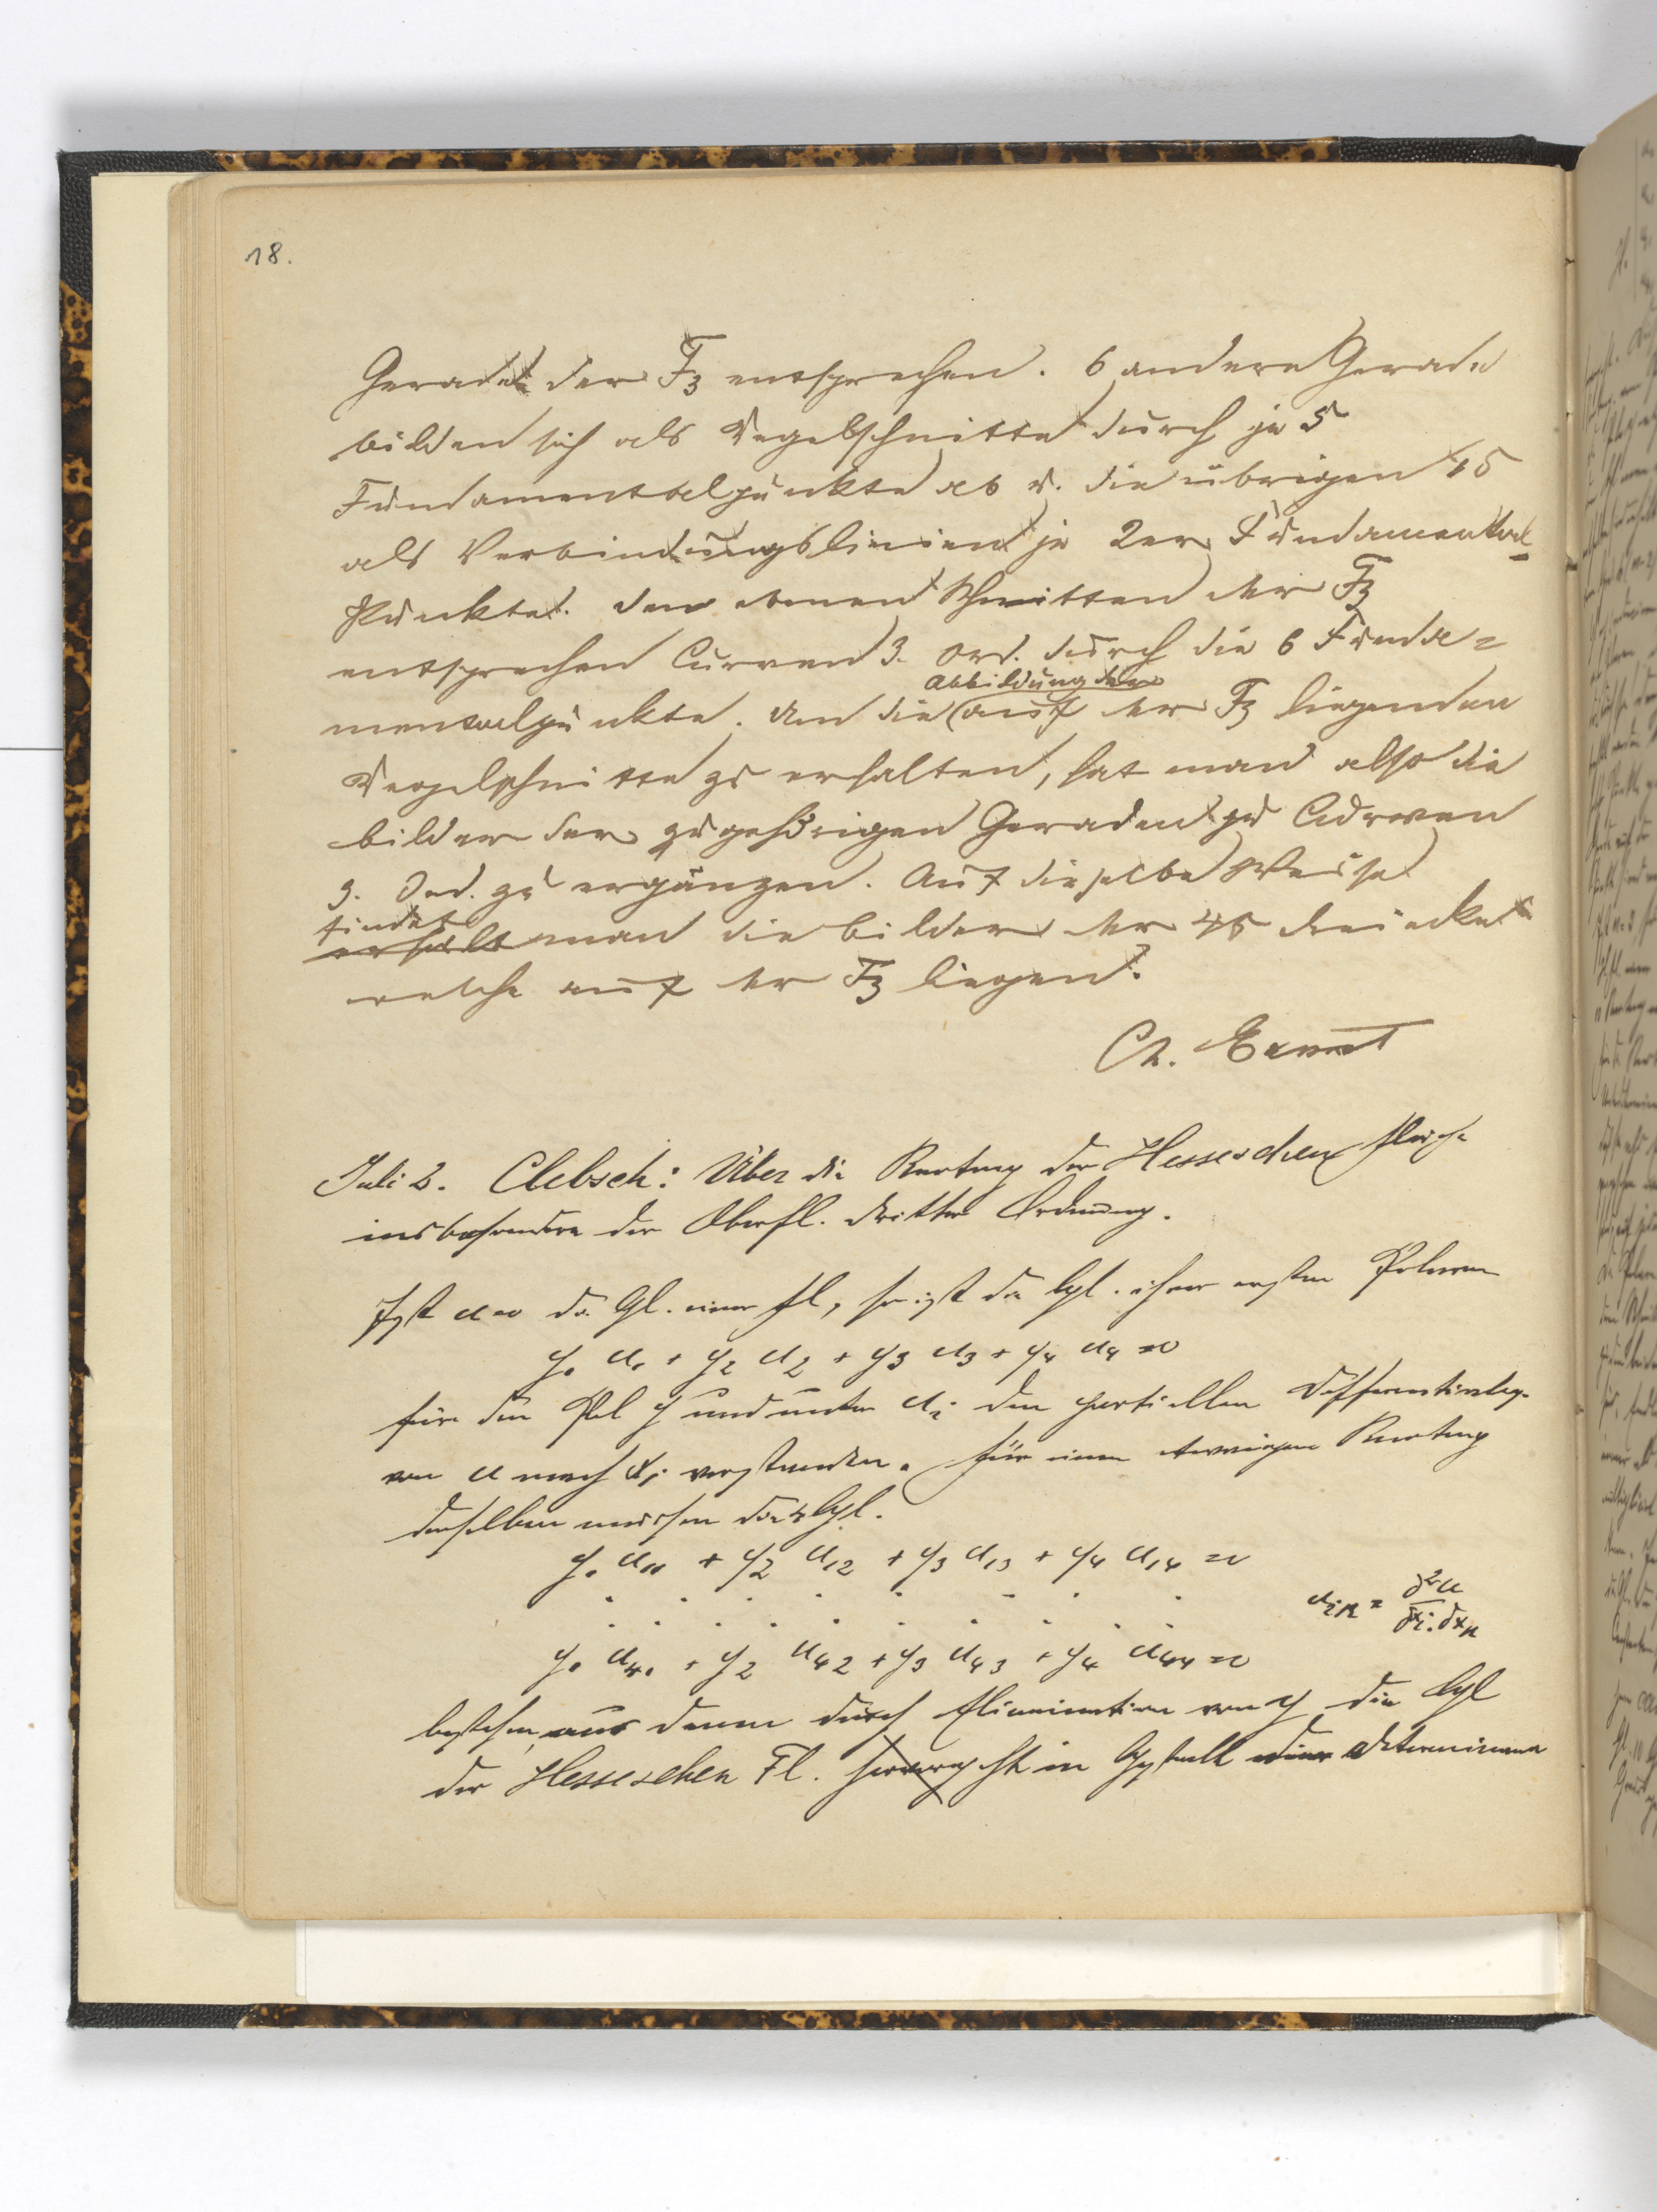 18.
Gerade der F3 entsprechen. 6 andere Gerade
bilden sich als Kegelschnitte durch je 5
Fundamentalpunkte ab u. die übrigen 15
als Verbindungslinien je 2er Fundamental-
Punkte. den ebenen Schnitten der F3
entsprechen Curven 3. Ord. durch die 6 Funda=
mentalpunkte. Um die (auf der F3 liegenden
Abbildung der
Kegelschnitte zu erhalten, hat man also die
bilder der zugehörigen Geraden zu Curven
3. Ord. zu ergänzen. Auf dieselbe Weise
findet
erhält man die bilder der 45 dreiecke
welche auf der F3 liegen.
Ch. Ernst
Juli 2. Clebsch: Über die Knoten der Hesseschen Fläche
insbesondere der Oberfl. dritter Ordnung.
Ist u=0 die Gl. einer Fl, so ist die Gl. ihrer ersten Polaren
y1 u1 + y2 u2 + y3 u3 + y4 u4 =0
für den Pol y und unter ui den partiellen Differentialqu.
von u nach xi verstanden. Für einen etwaigen Knoten
derselben müssen die 4 Gl.
y1 u11 + y2 u12 + y3 u13 + y4 u14 =0
. . . . . . . . .
uik = ∂²u / ∂xi . ∂xk
y1 u41 + y2 u42 + y3 u43 + y4 u44 =0
bestehen, aus denen durch Elimination von y die Gl
der Hesseschen Fl. in Gestalt einer Determinante